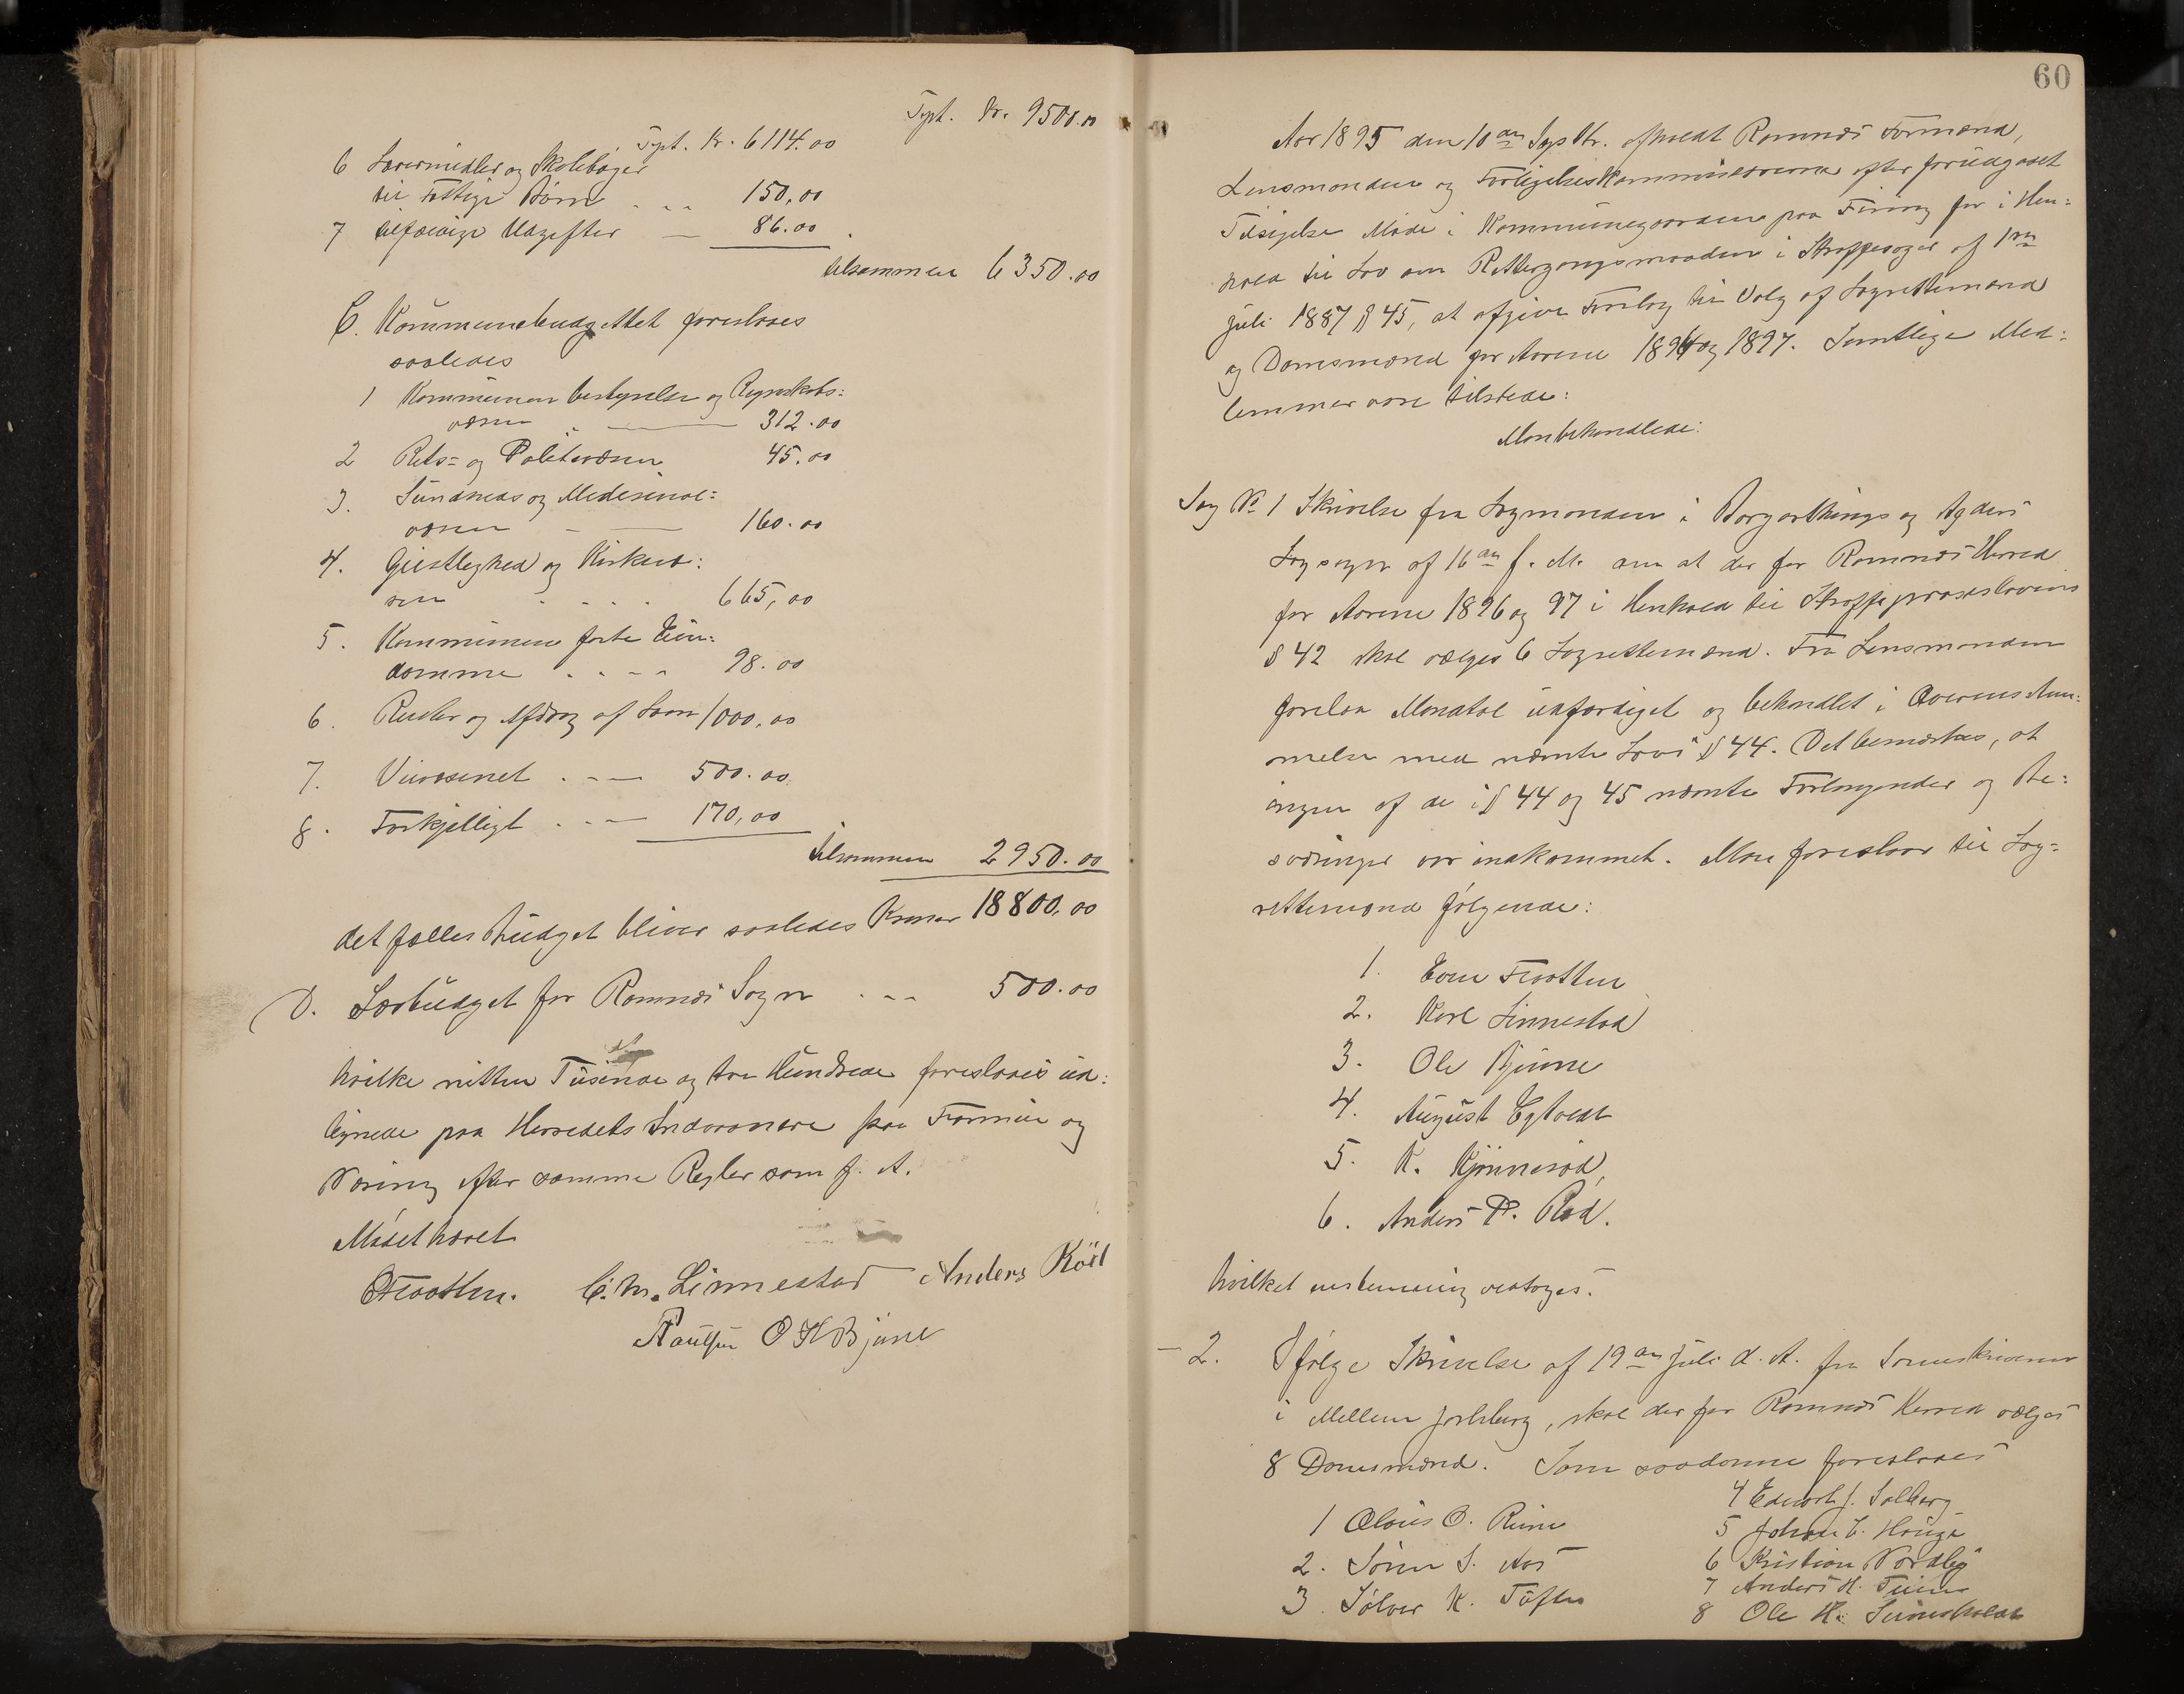 Tspt. Kr. 9500.00
Tspt. Kr. 6114.00
6 Lærermidler og Skolebøger
til Fattige Børn 150,00
7 tilfældige Udgifter 86.00
tilsammen 6350.00
C. Kommunebudgettet foreslaaes
saaledes
1 Kommunens bestyrelse og Regnskabs=
væsen 312.00
2 Rets= og Politivæsen 45.00
3. Sundheds og Medesinal=
væsen 160.00
4. Geistlighed og Kirkevæ:
sen 665,00
5. Kommunens faste Eien:
domme 98.00
6. Renter og Afdrag af Laan 1000,00
7. Veivæsenet 500.00
8. Forkjelligt 170,00
tilsammen 2950.00
det fælles Budget bliver saaledes Kroner 18800,00
D. Særbudget for Ramnæs Sogn 500.00
hvilke nitten Tusende og tre Hundrede foreslaaes ud:
lignede paa Herredets Indvaanere paa Formue og
Næring efter samme Regler som f. A.
Mødet hævet
CTraathen. C. M. Linnestad Anders Röd
Paulsen O H Bjune
60
Aar 1895 den 10de Septbr. afholdt Ramnæs Formænd,
Lensmanden og Forligelseskommissærerne efter forudgaaet
Tilsigelse Møde i Kommunegaarden paa Firing for i Hen:
hold til Lov om Rettergangsmaaden i Straffesager af 1ste
juli 1887 § 45, at afgive Forslag til Valg af Lagrettemænd
og Domsmænd for Aarene 1896 og 1897. Samtlige Med:
lemmer vare tilstede:
Man behandlede:
Sag No 1 Skrivelse fra Lagmanden i Borgarthings og Agders
Lagsogn af 16de f. M. om at der for Ramnæs Herred
for Aarene 1896 og 97 i Henhold til Straffeproseslovens
§ 42 skal vælges 6 Lagrettemænd. Fra Lensmanden
forelaa Mandtal udfærdiget og behandlet i Overenstem:
melse med nævnte Lovs § 44. Det bemærkes, at
ingen af de i § 44 og 45 nævnte Forlangender og Be:
sværinger var indkommet. Man foreslaar til Lag=
rettemænd følgende:
1. Even Traathen
2. Karl Linnestad
3. Ole Bjune
4. August Eghold
5. K. Kjønnerød,
6. Anders P. Rød.
hvilket enstemmig vedtoges.
- 2. Ifølge Skrivelse af 19de juli d. A. fra Sorenskriveren
i Mellem Jarlsberg, skal der for Ramnæs Herred vælges
8 Domsmænd. Som saadanne foreslaaes
1 Olavis O. Riine
2. Søren S. Aas
3. Sølver K. Tøfte
4 Edvart J. Solberg
5 Johan C. Hauge
6 Kristian Nordby
7 Anders H.
8 Ole H.